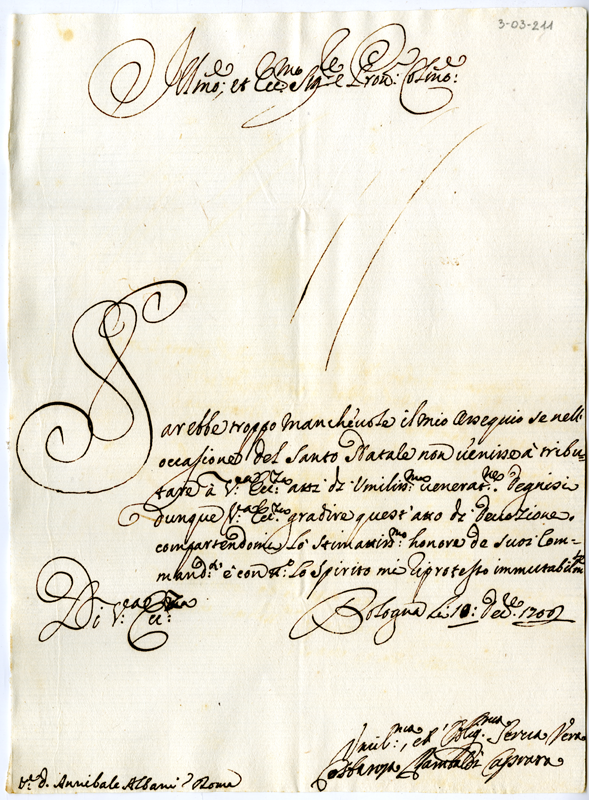 3-03-211
Illmo: et Ecc:mo Sigre Pron: Colmo:
Sarebbe troppo manchevole il mio Ossequio se nell'
occasione del Santo Natale non venisse à tribu=
tare à V:ra Ecc:za atti di Umiliss:mo venerat:ne. Degnisi
dunque V:ra Ecc:za gradire quest'atto di devozione,
compartendomi lo stimatiss:mo honore de suoi Com=
mand:i è con tt:o lo Spirito mi riprotesto immutabilmte
Di V:ra Ecc:za
Bologna li 18: Dec:e 1706
Umil:ma, et Oblig:ma Serva Vera
Rambaldi Caprara
D. Annibale Albani Roma